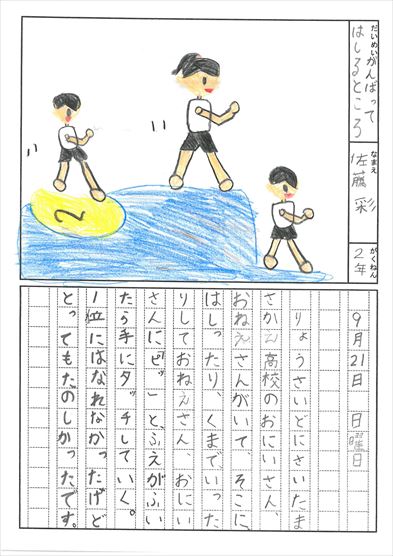 だいめい
がんばって
はしるところ
なまえ
佐藤 彩
がくねん
2年
2
9月21日 日曜日
りょうさいどにさいたま
さかえ高校のおにいさん、
おねえさんがいて、そこに、
はしったり、くまでいった
りしておねえさん、おにい
さんにピッーと、ふえがふい
たら手にタッチしていく。
1位にはなれなかったけど
とってもたのしかったです。